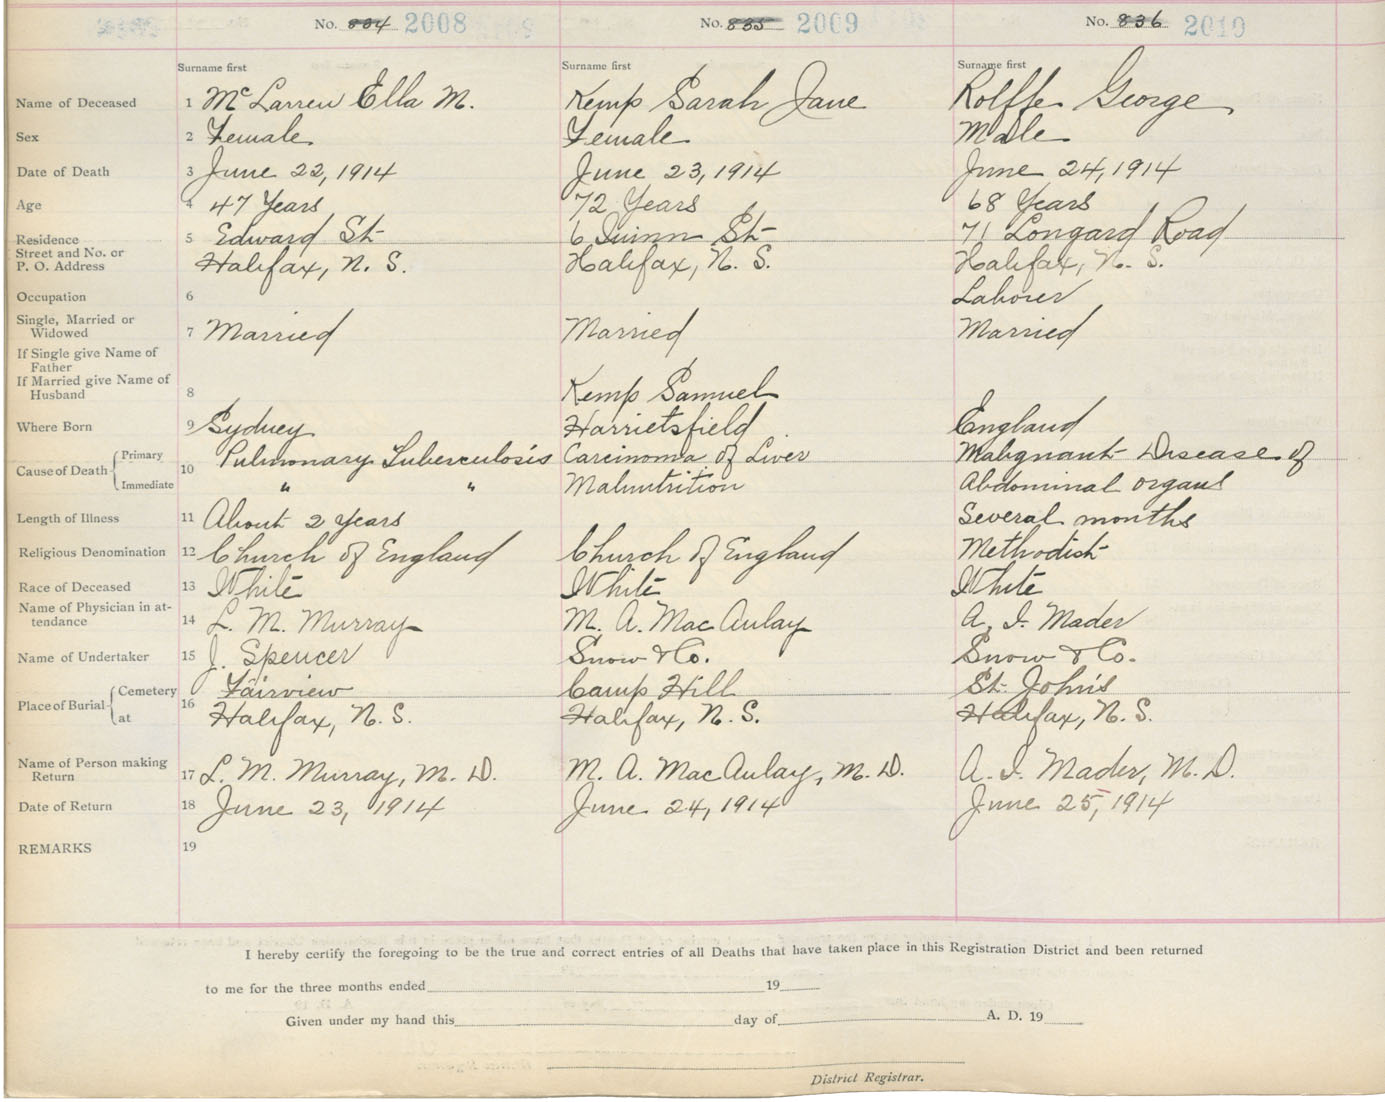 No. 834 2008 No. 835 2009 No. 836 2010
Surname first Surname first Surname first
Name of Deceased 1 McLarren Ella M. Kemp Sarah Jane Rolffe George
Sex 2 Female Female Male
Date of Death 3 June 22, 1914 June 23, 1914 June 24, 1914
Age 4 47 Years 72 Years 68 Years
Residence 5 Edward St 6 Quinn St 71 Longard Road
Street and No. or
P. O. Address Halifax, N. S. Halifax, N. S. Halifax, N. S.
Occupation 6 Laborer
Single, Married or
Widowed 7 Married Married Married
If Single give Name of
Father
If Married give Name of
Husband 8 Kemp Samuel
Where Born 9 Sydney Harrietsfield England
Cause of Death Primary 10 Pulmonary Tuberculosis Carcinoma of Liver Malignant Disease of
Immediate " " Malnutrition Abdominal organs
Length of Illness 11 About 2 Years Several months
Religious Denomination 12 Church of England Church of England Methodist
Race of Deceased 13 White White White
Name of Physician in at-
tendance 14 L. M. Murray M. A. MacAulay A. I. Mader
Name of Undertaker 15 J. Spencer Snow & Co. Snow & Co.
Place of Burial Cemetery 16 Fairview Camp Hill St. John's
at Halifax, N. S. Halifax, N. S. Halifax, N. S.
Name of Person making
Return 17 L. M. Murray, M. D. M. A. MacAulay, M. D. A. I. Mader, M. D.
Date of Return 18 June 23, 1914 June 24, 1914 June 25, 1914
REMARKS 19
I hereby certify the foregoing to be the true and correct entries of all Deaths that have taken place in this Registration District and been returned
to me for the three months ended 19
Given under my hand this day of A. D. 19
District Registrar.